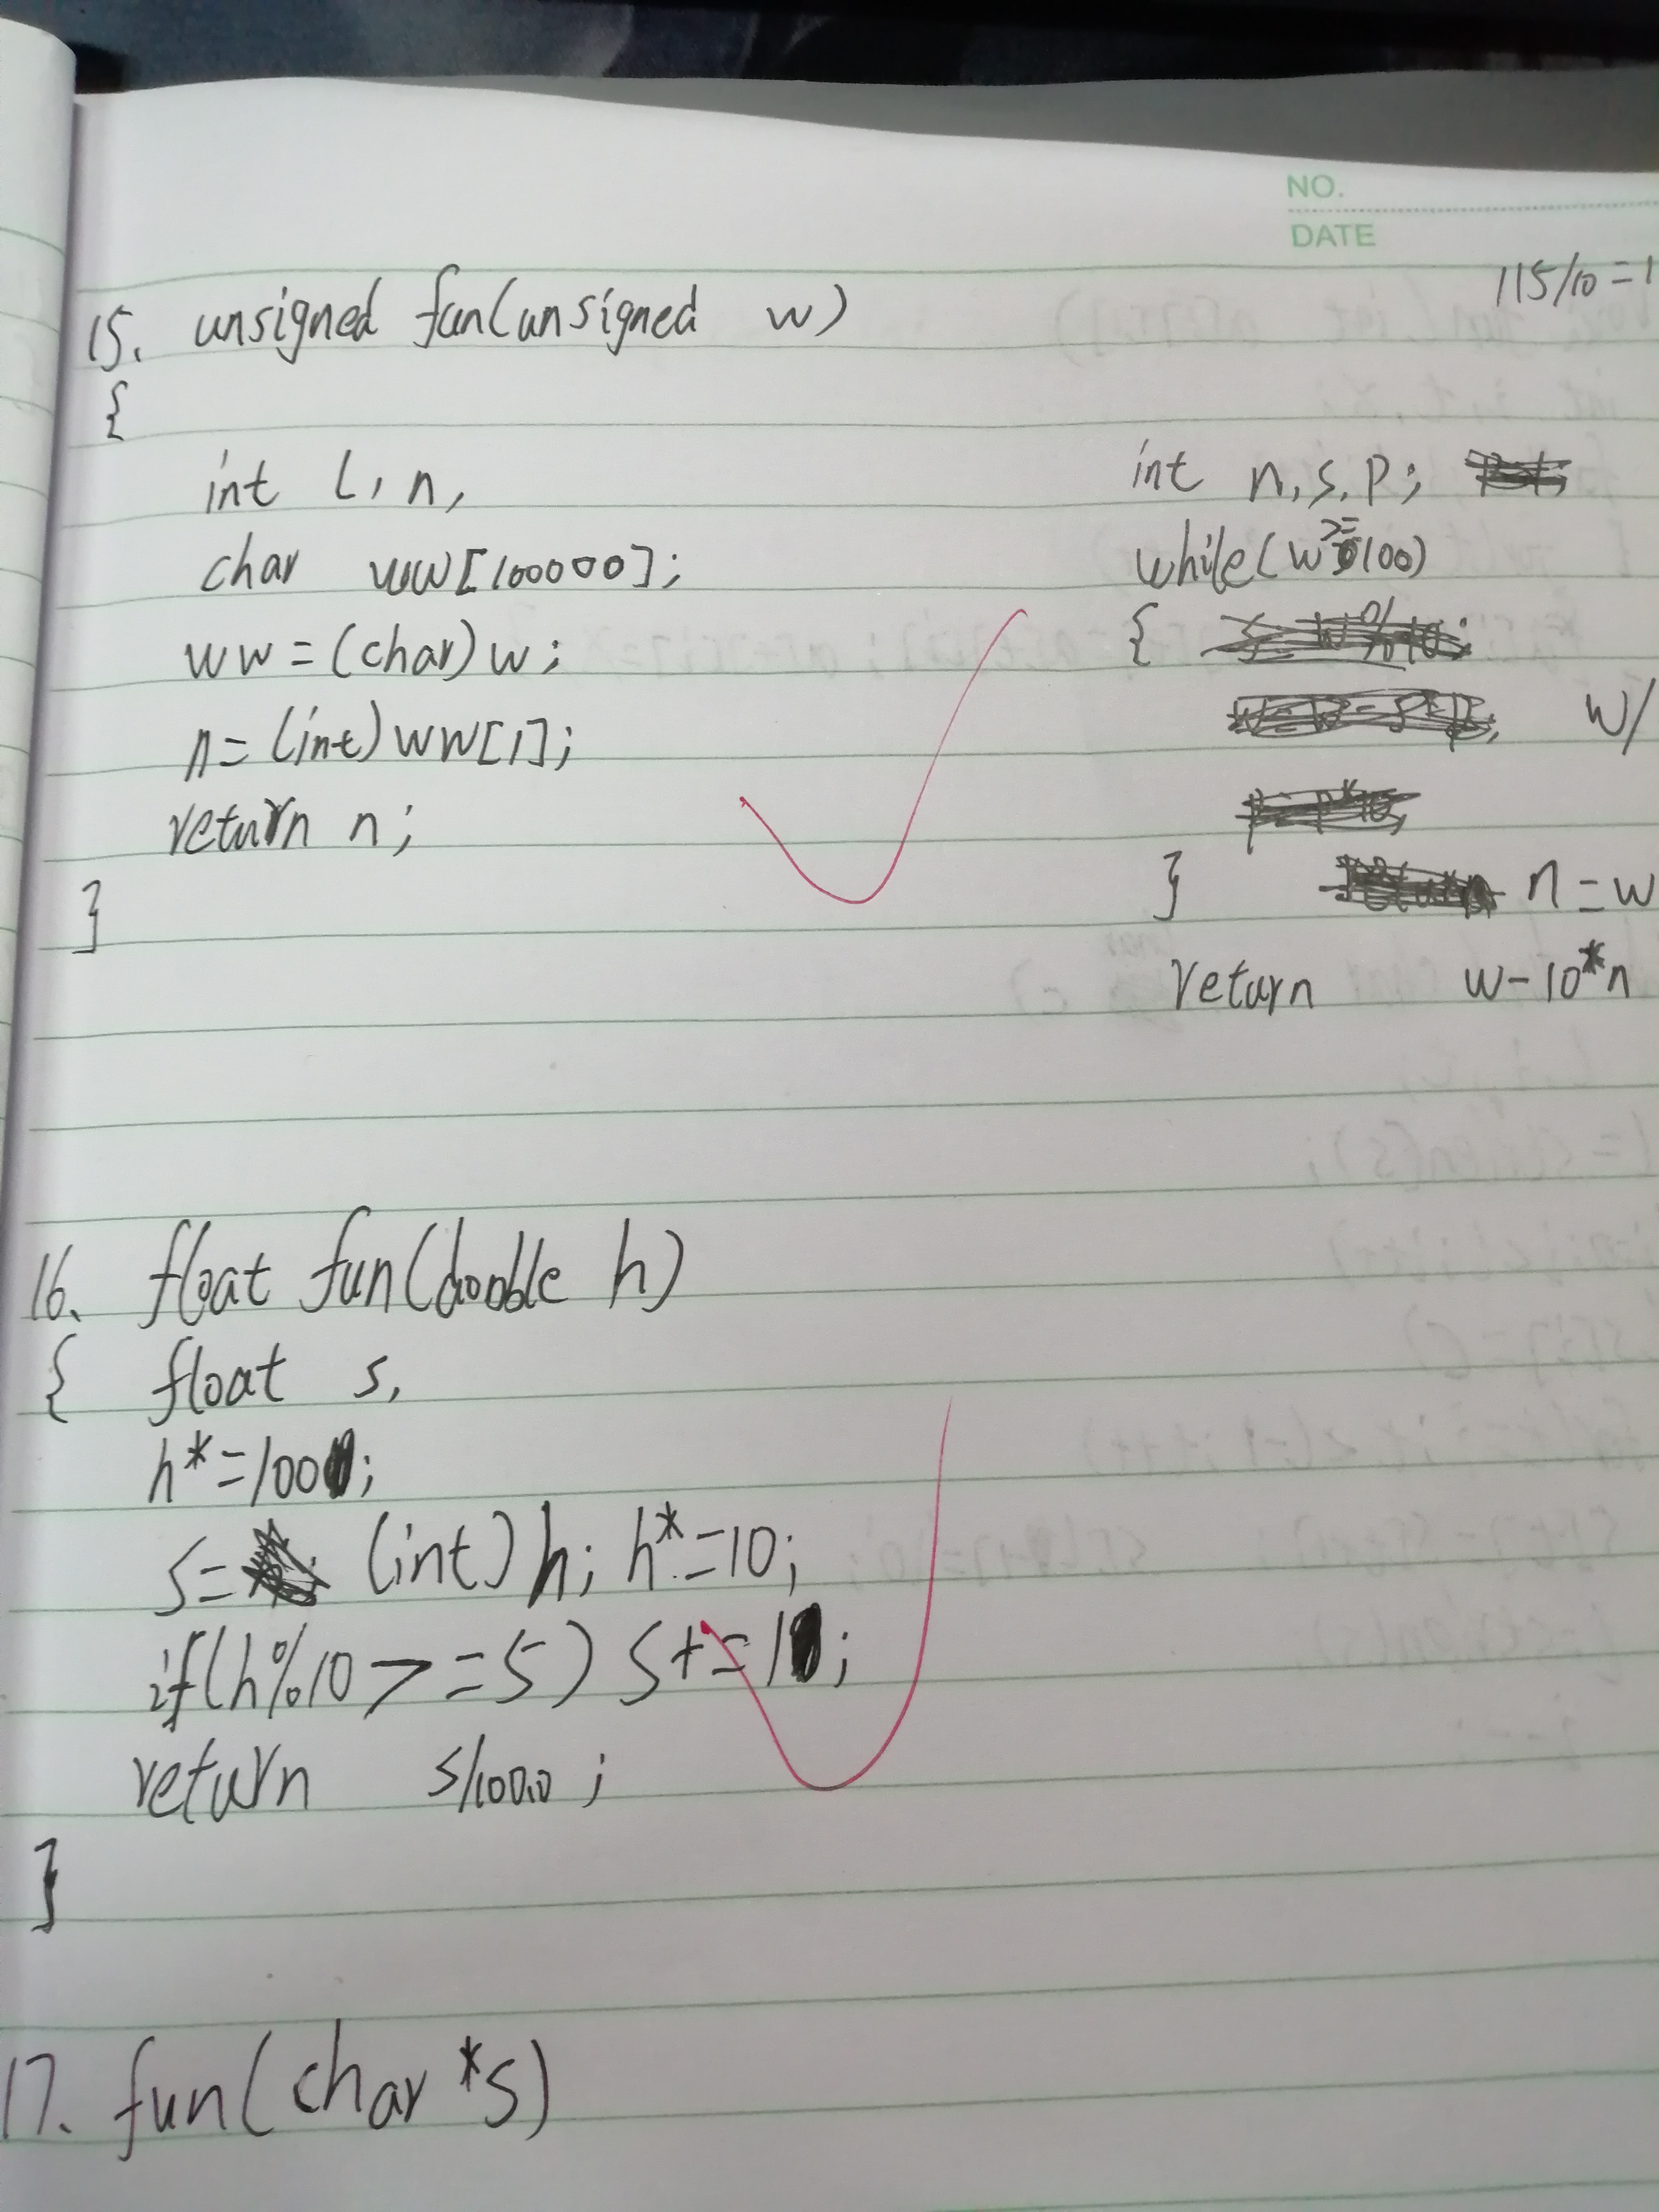 NO.
DATE
115/10=1
15. unsigned fun(unsigned w)
{
int i, n,
char ww[100000];
ww=(char)w;
n=(int)ww[1];
return n;
}
int n,s,p;
while(w>=100)
{
w/
}
n=w
return w-10*n
16. float fun(double h)
{ float s,
h*=100;
s= (int)h; h*=10;
if(h%10>=5) s+=1;
return s/100.0;
}
17. fun(char *s)